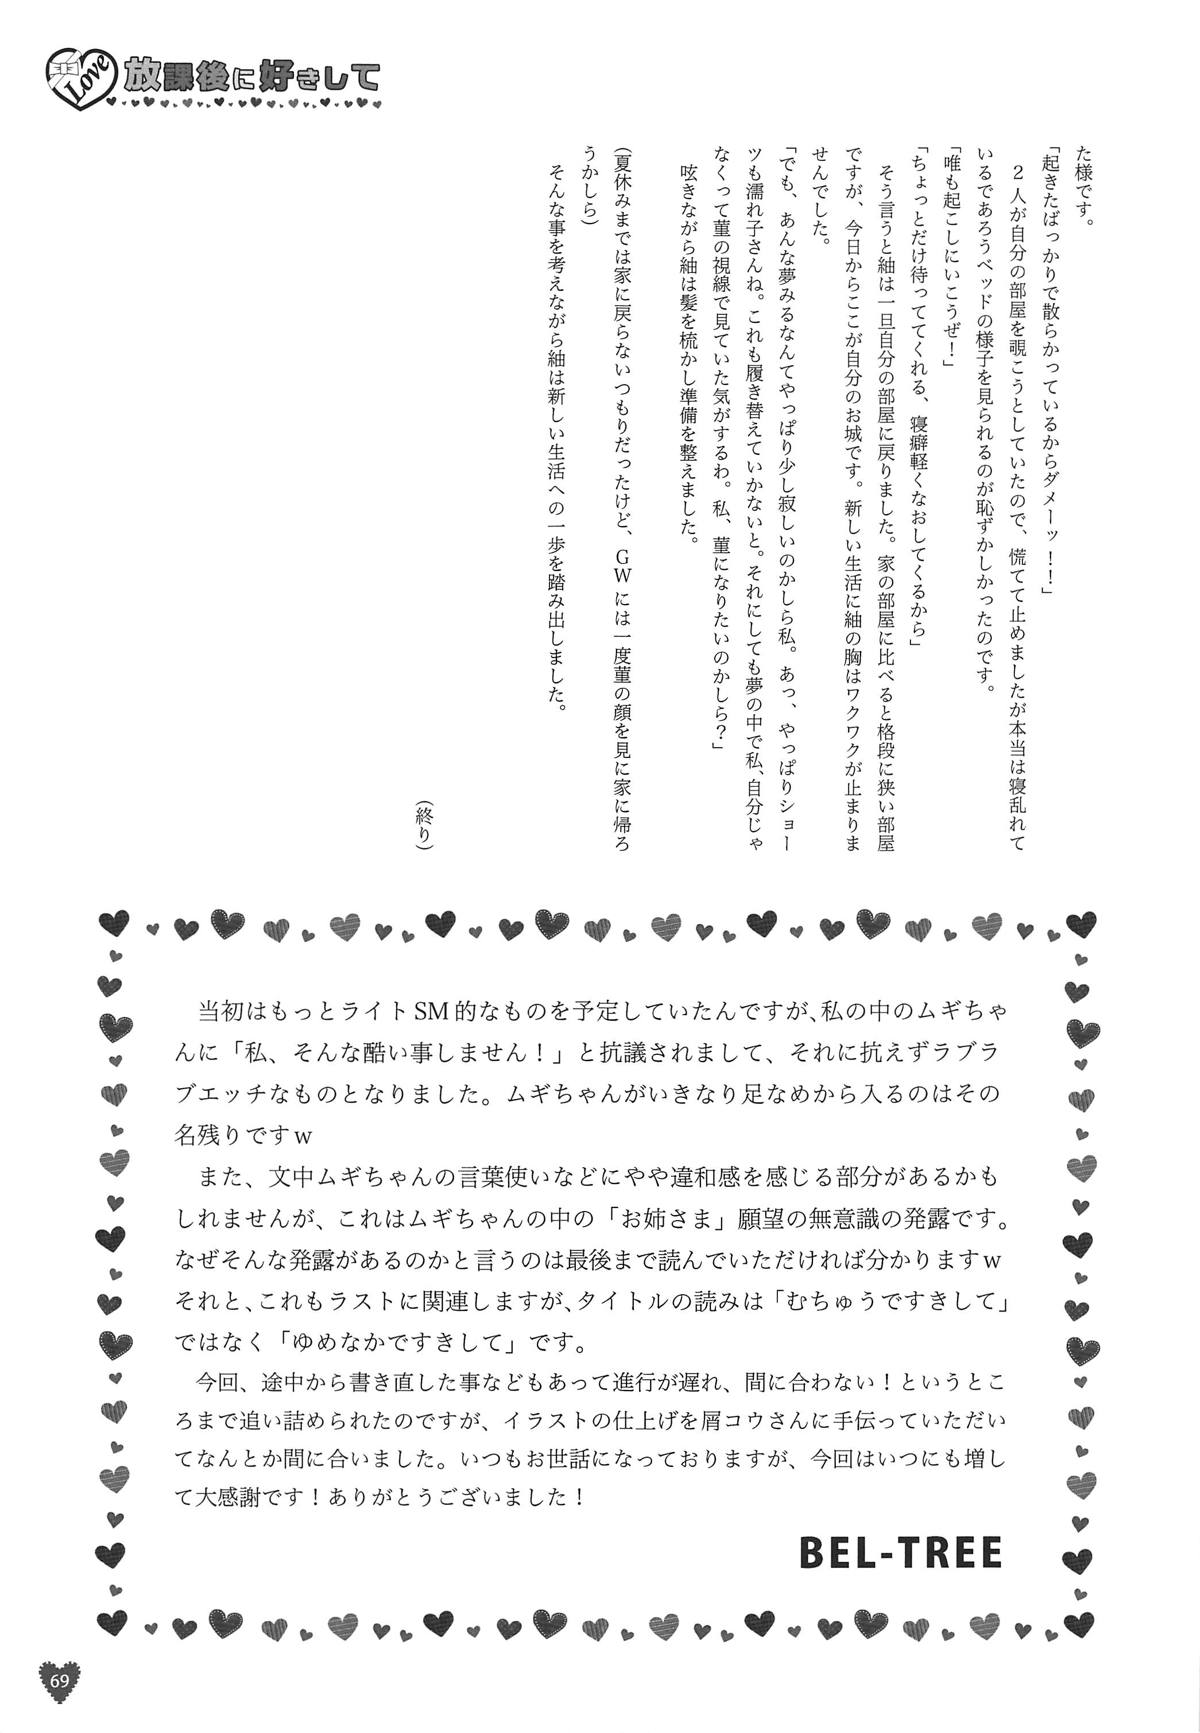 Love
放課後に好きして
た様です。
「起きたばっかりで散らかっているからダメーッ！！」
２人が自分の部屋を覗こうとしていたので、慌てて止めましたが本当は寝乱れて
いるであろうベッドの様子を見られるのが恥ずかしかったのです。
「唯も起こしにいこうぜ！」
「ちょっとだけ待っててくれる、寝癖軽くなおしてくるから」
そう言うと紬は一旦自分の部屋に戻りました。家の部屋に比べると格段に狭い部屋
ですが、今日からここが自分のお城です。新しい生活に紬の胸はワクワクが止まりま
せんでした。
「でも、あんな夢みるなんてやっぱり少し寂しいのかしら私。あっ、やっぱりショー
ツも濡れ子さんね。これも履き替えていかないと。それにしても夢の中で私、自分じゃ
なくって菫の視線で見ていた気がするわ。私、菫になりたいのかしら？」
呟きながら紬は髪を梳かし準備を整えました。
（夏休みまでは家に戻らないつもりだったけど、ＧＷには一度菫の顔を見に家に帰ろ
うかしら）
そんな事を考えながら紬は新しい生活への一歩を踏み出しました。
（終り）
当初はもっとライト SM 的なものを予定していたんですが、私の中のムギちゃ
んに「私、そんな酷い事しません！」と抗議されまして、それに抗えずラブラ
ブエッチなものとなりました。ムギちゃんがいきなり足なめから入るのはその
名残りですｗ
また、文中ムギちゃんの言葉使いなどにやや違和感を感じる部分があるかも
しれませんが、これはムギちゃんの中の「お姉さま」願望の無意識の発露です。
なぜそんな発露があるのかと言うのは最後まで読んでいただければ分かりますｗ
それと、これもラストに関連しますが、タイトルの読みは「むちゅうですきして」
ではなく「ゆめなかですきして」です。
今回、途中から書き直した事などもあって進行が遅れ、間に合わない！というとこ
ろまで追い詰められたのですが、イラストの仕上げを屑コウさんに手伝っていただい
てなんとか間に合いました。いつもお世話になっておりますが、今回はいつにも増し
て大感謝です！ありがとうございました！
BEL-TREE
69